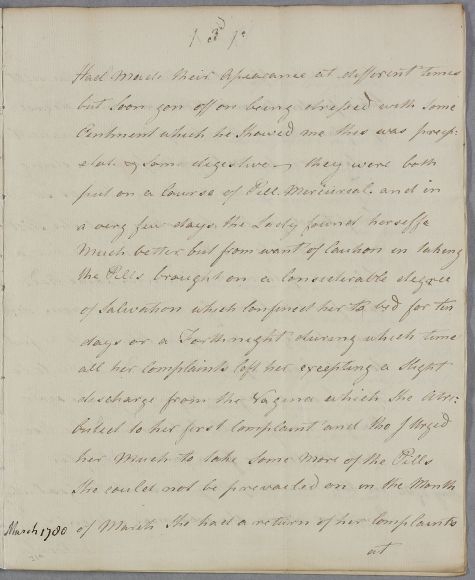 ( 3d )
Had Made their Apearance at different times
but soon gon off on being dressed with some
Ointment which he Showed me this was precip:
elat. & som digestive — they were both
put on a Course of Pill. Mercureal. and in
a very few days the Lady found herselfe
Much better but from want of Caution in taking
the Pills brought on a considerable degree
of Salivation which confined her to bed for ten
days or a Forthnight during which time
all her Complaints left her excepting a Slight
discharge from the Vagina which She atre:
buted to her first Complaint and tho I Urged
her Much to take Some More of the Pills
She could not be prevailed on in the Month
March 1780 of March She had a return of her Complaints
at